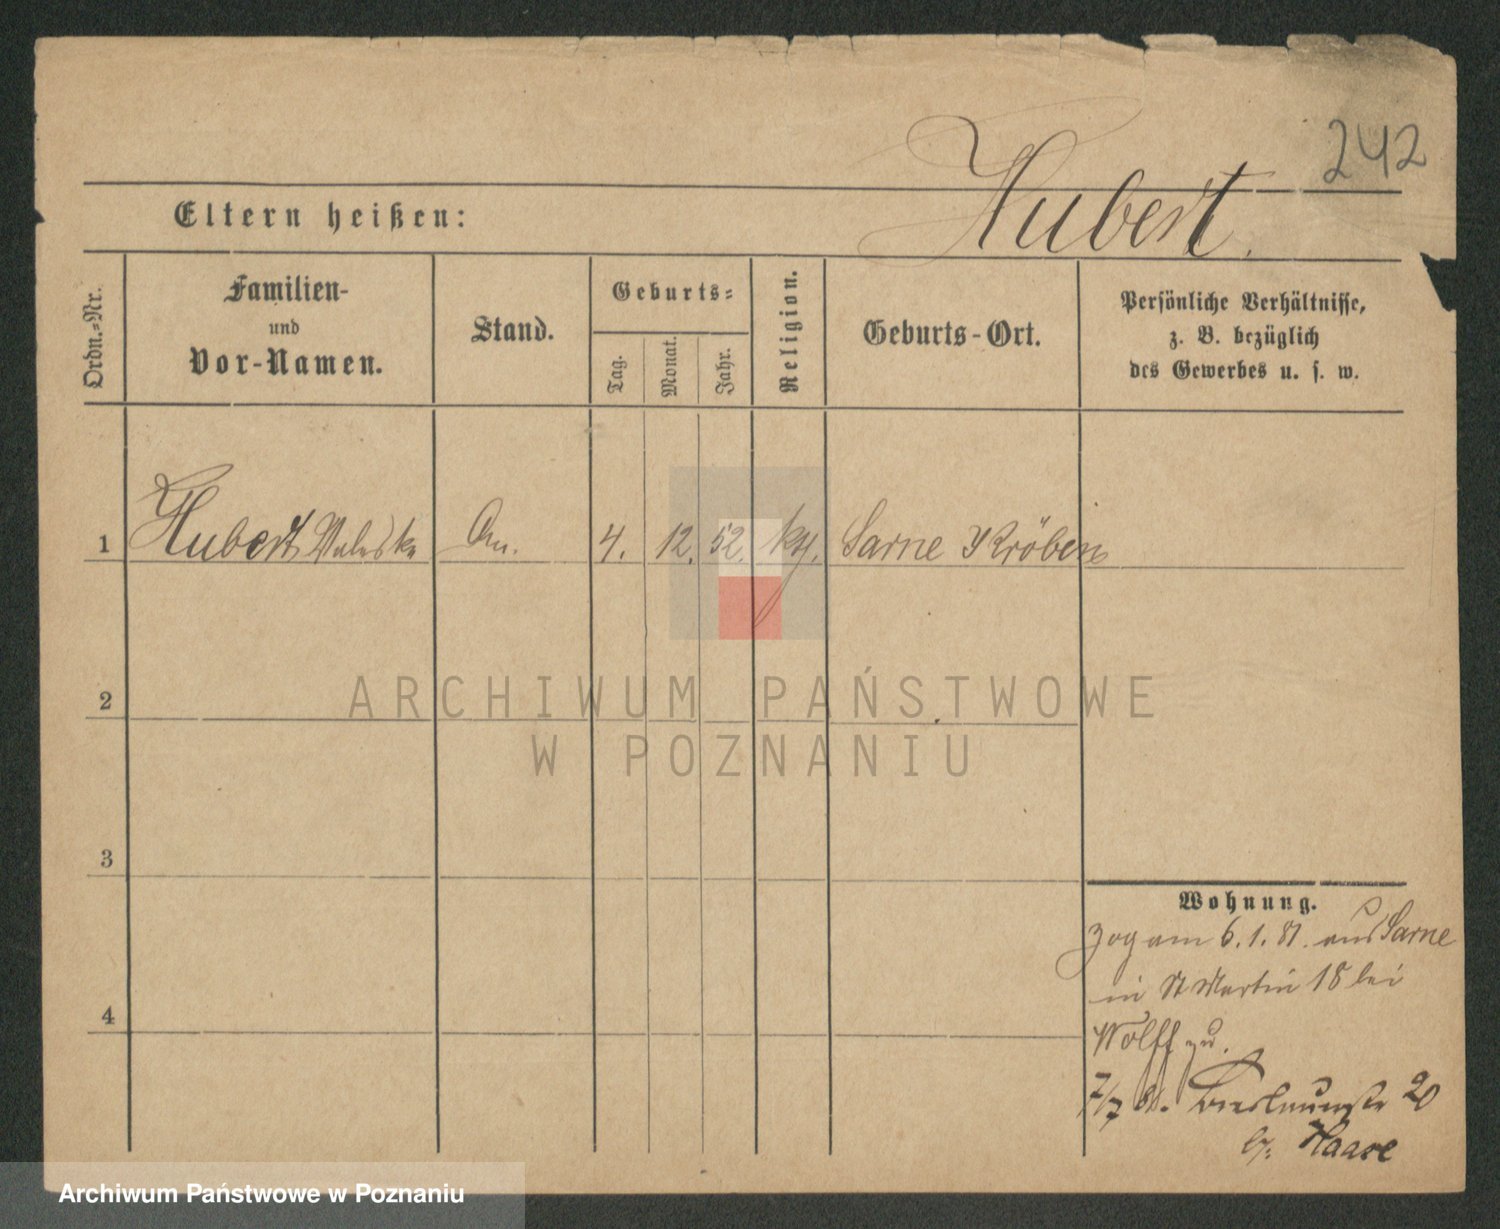 242
Hubert.
Eltern heißen:
Ordn.=Nr.
Familien-
und
Vor-Namen.
Stand.
Geburts=
Tag.
Monat.
Jahr.
Religion.
Geburts-Ort.
Persönliche Verhältnisse,
z. B. bezüglich
des Gewerbes u. s. w.
1 Hubert Valeska 4. 12. 52. Sarne Kröben
2
ARCHIWUM PAŃSTWOWE
W POZNANIU
3
4
Wohnung.
zog am 6.1.81. aus Sarne
in St Martin 18 bei
Wolff zu.
7/7 81. Breslauerstr 20
b/ Haase
Archiwum Państwowe w Poznaniu